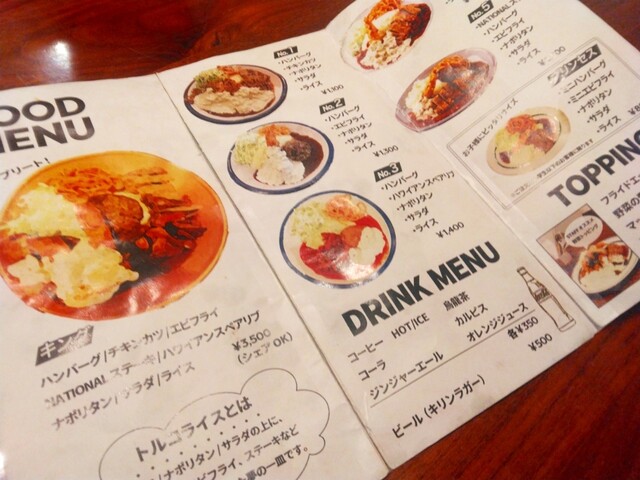 FOOD
MENU
プリート!
キング
ハンバーグ/チキンカツ/エビフライ
NATIONALステーキ/ハワイアンスペアリブ
ナポリタン/サラダ/ライス
¥3,500
(シェアOK)
トルコライスとは
/ナポリタン/サラダの上に、
ビフライ、ステーキなど
夢の一皿です。
No.1
・ハンバーグ
・チキンカツ
・ナポリタン
・サラダ
・ライス
¥1,100
No.2
・ハンバーグ
・エビフライ
・ナポリタン
・サラダ
・ライス
¥1,300
No.3
・ハンバーグ
・ハワイアンスペアリブ
・ナポリタン
・サラダ
・ライス
¥1,400
DRINK MENU
コーヒー HOT/ICE 烏龍茶
コーラ カルピス
ジンジャーエール オレンジジュース
各¥350
ビール(キリンラガー) ¥500
No.5
・NATIONALス
・ハンバーグ
・エビフライ
・ナポリタン
・サラダ
・ライス
プリンセス
お子様にピッタリサイズ
・ミニハンバーグ
・ミニエビフライ
・ナポリタン
・サラダ
・ライス
TOPPING
フライドエ
野菜の
マ